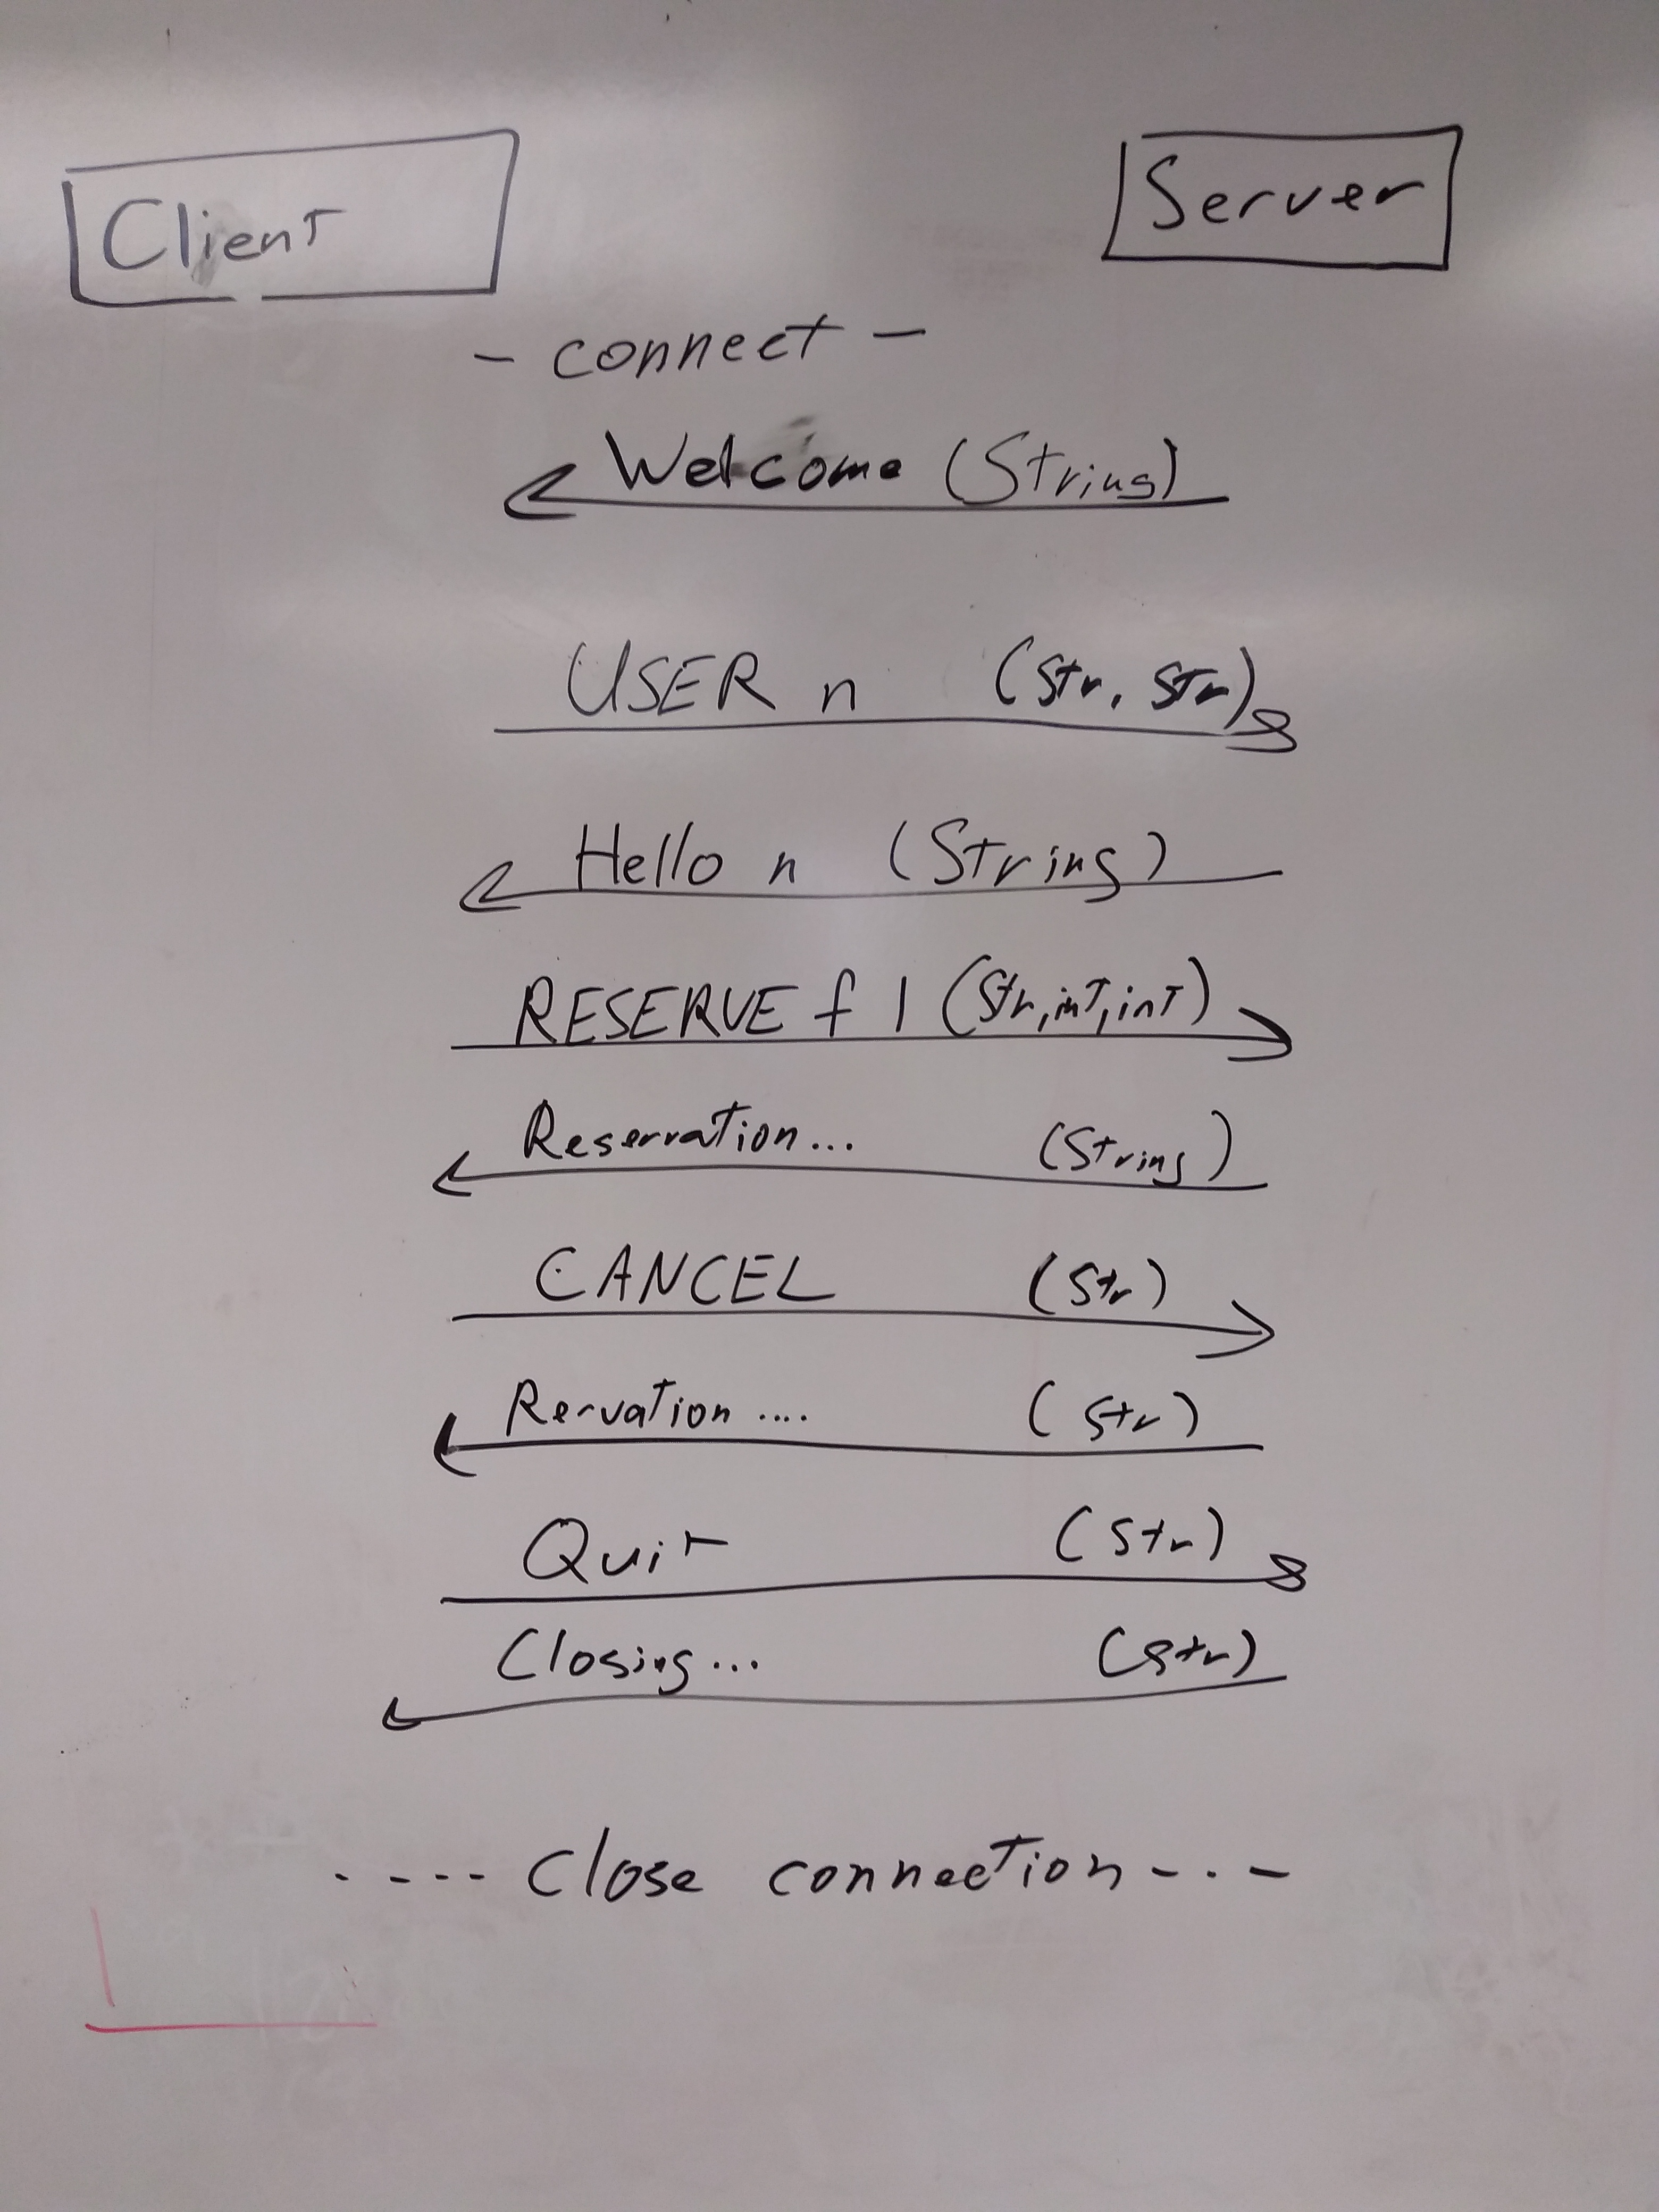 Client
Server
- connect -
Welcome (String)
USER n (Str, Str)
Hello n (String)
RESERVE f l (Str, int, int)
Reservation... (String)
CANCEL (Str)
Rervation .... (Str)
Quit (Str)
Closing... (Str)
. - - - - Close connection - . . -